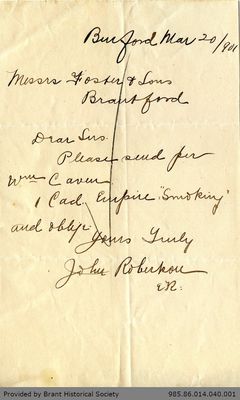 Burford Mar 20/901
Messrs Foster & Sons
Brantford
Dear Sirs
Please send per
Wm Caven
1 Cad. Empire "Smoking"
and oblige
Yours Truly
John Robertson
E.R.
Provided by Brant Historical Society
985.86.014.040.001